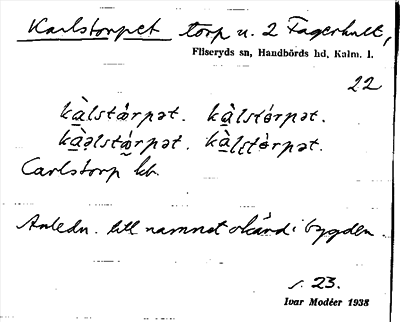 Karlstorpet torp u. 2 Fagerhult,
Fliseryds sn, Handbörds hd, Kalm. l.
22
kàlstárpət. kàlstórpət.
kàəlstárpət. kàlstòrpət.
Carlstorp kb.
Anledn. till namnet okänd i bygden.
s. 23.
Ivar Modéer 1938